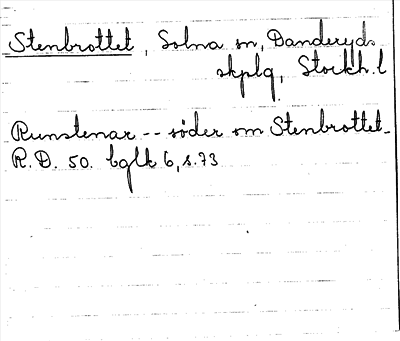 Stenbrottet, Solna sn, Danderyds
skplg, Stockh. l
Runstenar -- söder om Stenbrottet_
R.D. 50. bglk 6, s. 73